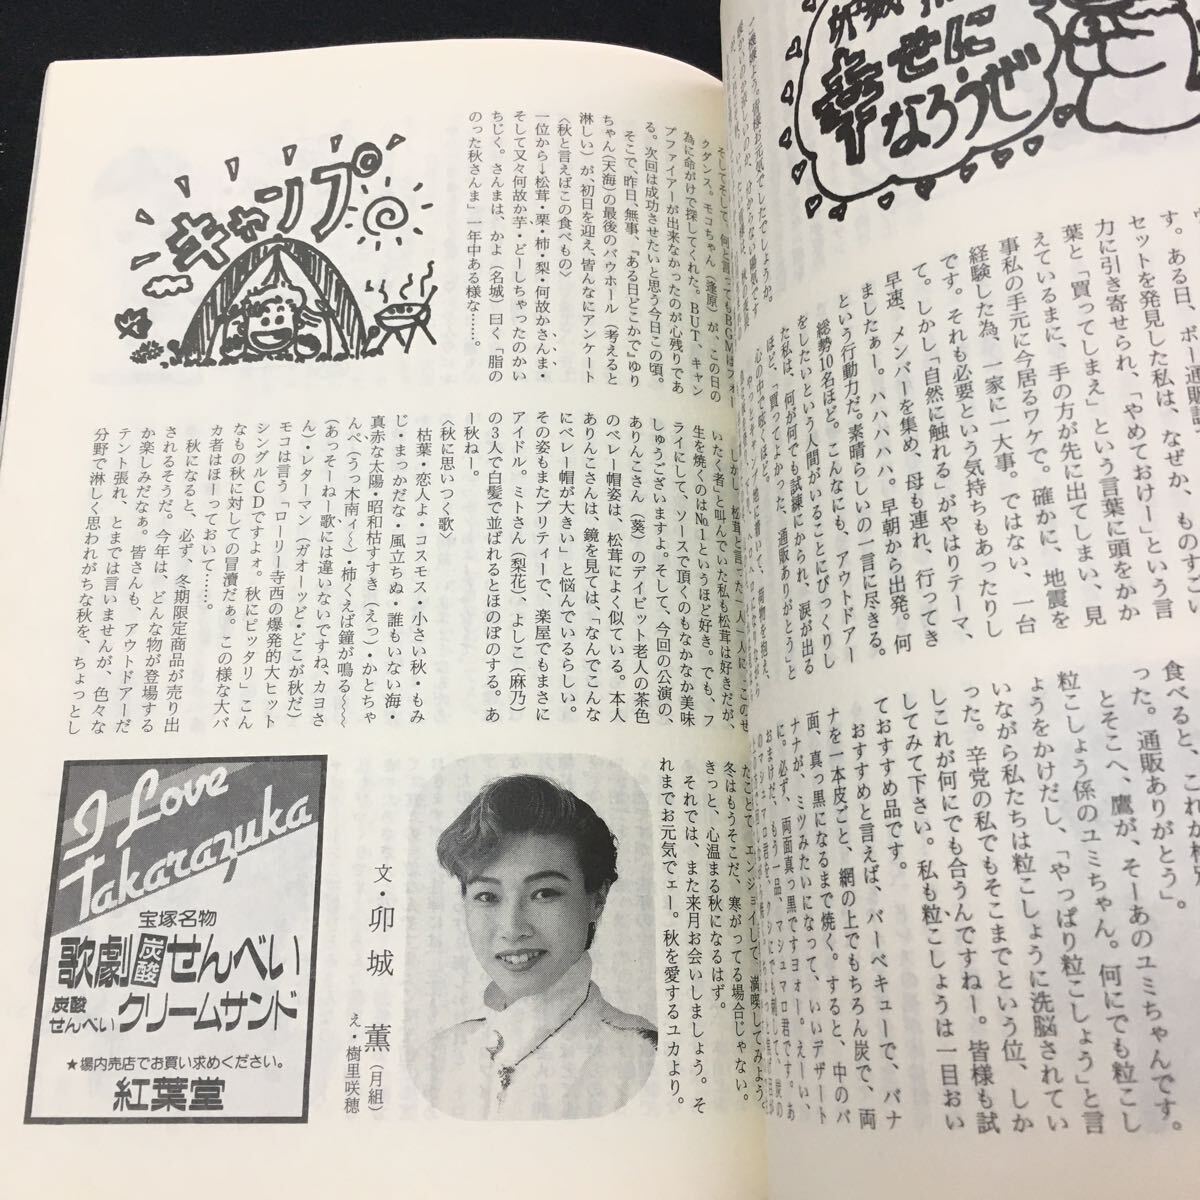 幸せに
なろうぜ
す。ある日、ボー通販誌
セットを発見した私は、なぜか、ものすご
力に引き寄せられ、「やめておけー」という言
葉と「買ってしまえ」という言葉に頭をかか
えているまに、手の方が先に出てしまい、見
事私の手元に今居るワケで。確かに、地震を
経験した為、一家に一大事。ではない、一台
です。それも必要という気持ちもあったりし
て。しかし「自然に触れる」がやはりテーマ、
早速、メンバーを集め、母も連れ、行ってき
ましたぁー。ハハハハハ。早朝から出発。何
という行動力だ。素晴らしいの一言に尽きる。
総勢10名ほど。こんなにも、アウトドアー
をしたいという人間がいることにびっくりし
た私は、何が何でも試練にかられ、涙が出る
ほど、「買ってよかった。通販ありがとう」と
心の中で呟くほど。
食べると、これが格別
った。通販ありがとう。
とそこへ、鷹が、そーあのユミちゃんです。
粒こしょう係のユミちゃん。何にでも粒こし
ょうをかけだし、「やっぱり粒こしょう」と言
いながら私たちは粒こしょうに洗脳されてい
った。辛党の私でもそこまでという位、しか
しこれが何にでも合うんですねー。皆様も試
してみて下さい。私も粒こしょうは一目おい
ておすすめ品です。
おすすめと言えば、バーベキューで、バナ
ナを一本皮ごと、網の上でもちろん炭で、両
面、真っ黒になるまで焼く。すると、中のバ
ナナが、ミツみたいになって、いいデザート
に。必ず、両面真っ黒ですヨォー。えーい、
おまけだ、もう一品、マシュマロ君です。あ
のマシュマロ君を、クシにでも刺して、炭の
そしてそして、何と言ってもBGMはフォー
クダンス。モコちゃん（逢原）が、この日の
為に命がけで探してくれた。BUT、キャン
プファイアーが出来なかったのが心残りであ
る。次回は成功させたいと思う今日この頃。
そこで、昨日、無事、『ある日どこかで』ゆり
ちゃん（天海）の最後のバウホール（考えると
淋しい）が、初日を迎え、皆んなにアンケート
〈秋と言えばこの食べもの〉
一位から→松茸・栗・柿・梨・何故かさんま・
そして又々何故か芋・どーしちゃったのかい
ちじく。さんまは、かよ（名城）曰く「脂の
のった秋さんま」一年中ある様な……。
キャンプ
しかし、松茸と言った一人一人に、「このぜ
いたく者」と叫んでいた私も松茸は好きだが、
生を焼くのは№1というほど好き。でも、フ
ライにして、ソースで頂くのもなかなか美味
しゅうございますよ。そして、今回の公演の、
ありんこさん（葵）のデイビット老人の茶色
のベレー帽姿は、松茸によく似ている。本人
ありんこさんは、鏡を見ては、「なんでこんな
にベレー帽が大きい」と悩んでいるらしい。
その姿もまたプリティーで、楽屋でもまさに
アイドル。ミトさん（梨花）、よしこ（麻乃）
の3人で白髪で並ばれるとほのぼのする。あ
ー秋ねー。
〈秋に思いつく歌〉
枯葉・恋人よ・コスモス・小さい秋・もみ
じ・まっかだな・風立ちぬ・誰もいない海・
真赤な太陽・昭和枯すすき（えつ）・かとちゃ
んぺ（うっ木南ィ〜）・柿くえば鐘が鳴る〜〜〜
（あっそーね―歌には違いないですね、カヨさ
ん）・レターマン（ガオーッど・どこが秋だ）
モコは言う「ローリー寺西の爆発的大ヒット
シングルCDですよォ。秋にピッタリ」こん
なもの秋に対しての冒瀆だぁ。この様な大バ
カ者はほーっておいて……。
秋になると、必ず、冬期限定商品が売り出
されるそうだ。今年は、どんな物が登場する
か楽しみだなぁ。皆さんも、アウトドアーだ
テント張れ、とまでは言いませんが、色々な
分野で淋しく思われがちな秋を、ちょっとし
たことで、エンジョイして、満喫してみよう。
冬はもうそこだ、寒がってる場合じゃない。
きっと、心温まる秋になるはず。
それでは、また来月お会いしましょう。そ
れまでお元気でェー。秋を愛するユカより。
文・卯城　薫（月組）
え・樹里咲穂
I Love
Takarazuka
宝塚名物
歌劇炭酸せんべい
炭酸せんべいクリームサンド
★場内売店でお買い求めください。
紅葉堂